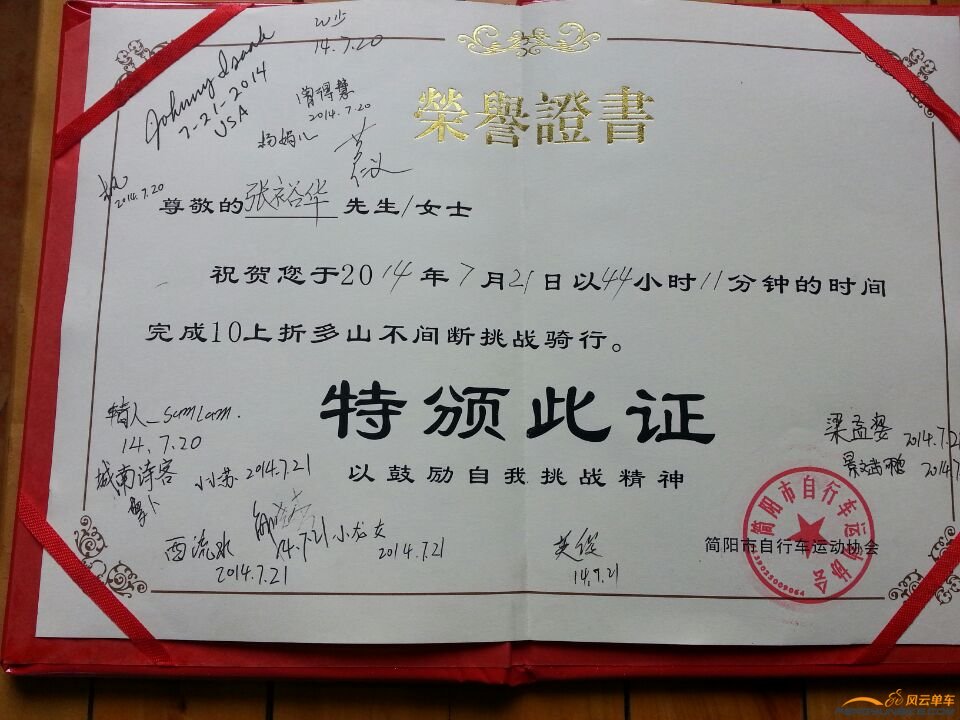 Johnny Isaak
7-21-2014
USA
14.7.20
2014.7.20
杨妈儿
2014.7.20
榮譽證書
尊敬的张裕华先生/女士
祝贺您于2014年7月21日以44小时11分钟的时间
完成10上折多山不间断挑战骑行。
特颁此证
以鼓励自我挑战精神
SamLam.
14.7.20
城南诗客
萝卜
小苏 2014.7.21
西流水
2014.7.21
14.7.21
小龙女
2014.7.21
14.7.21
梁孟娑 2014.7.21
2014.7
简阳市自行车运动协会
简阳市自行车运动协会
风云单车